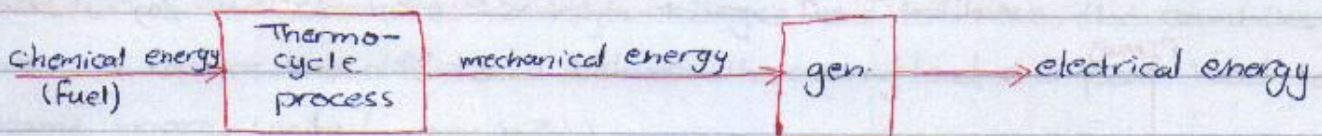 chemical energy
(fuel)
Thermo-
cycle
process
mechanical energy
gen.
electrical energy